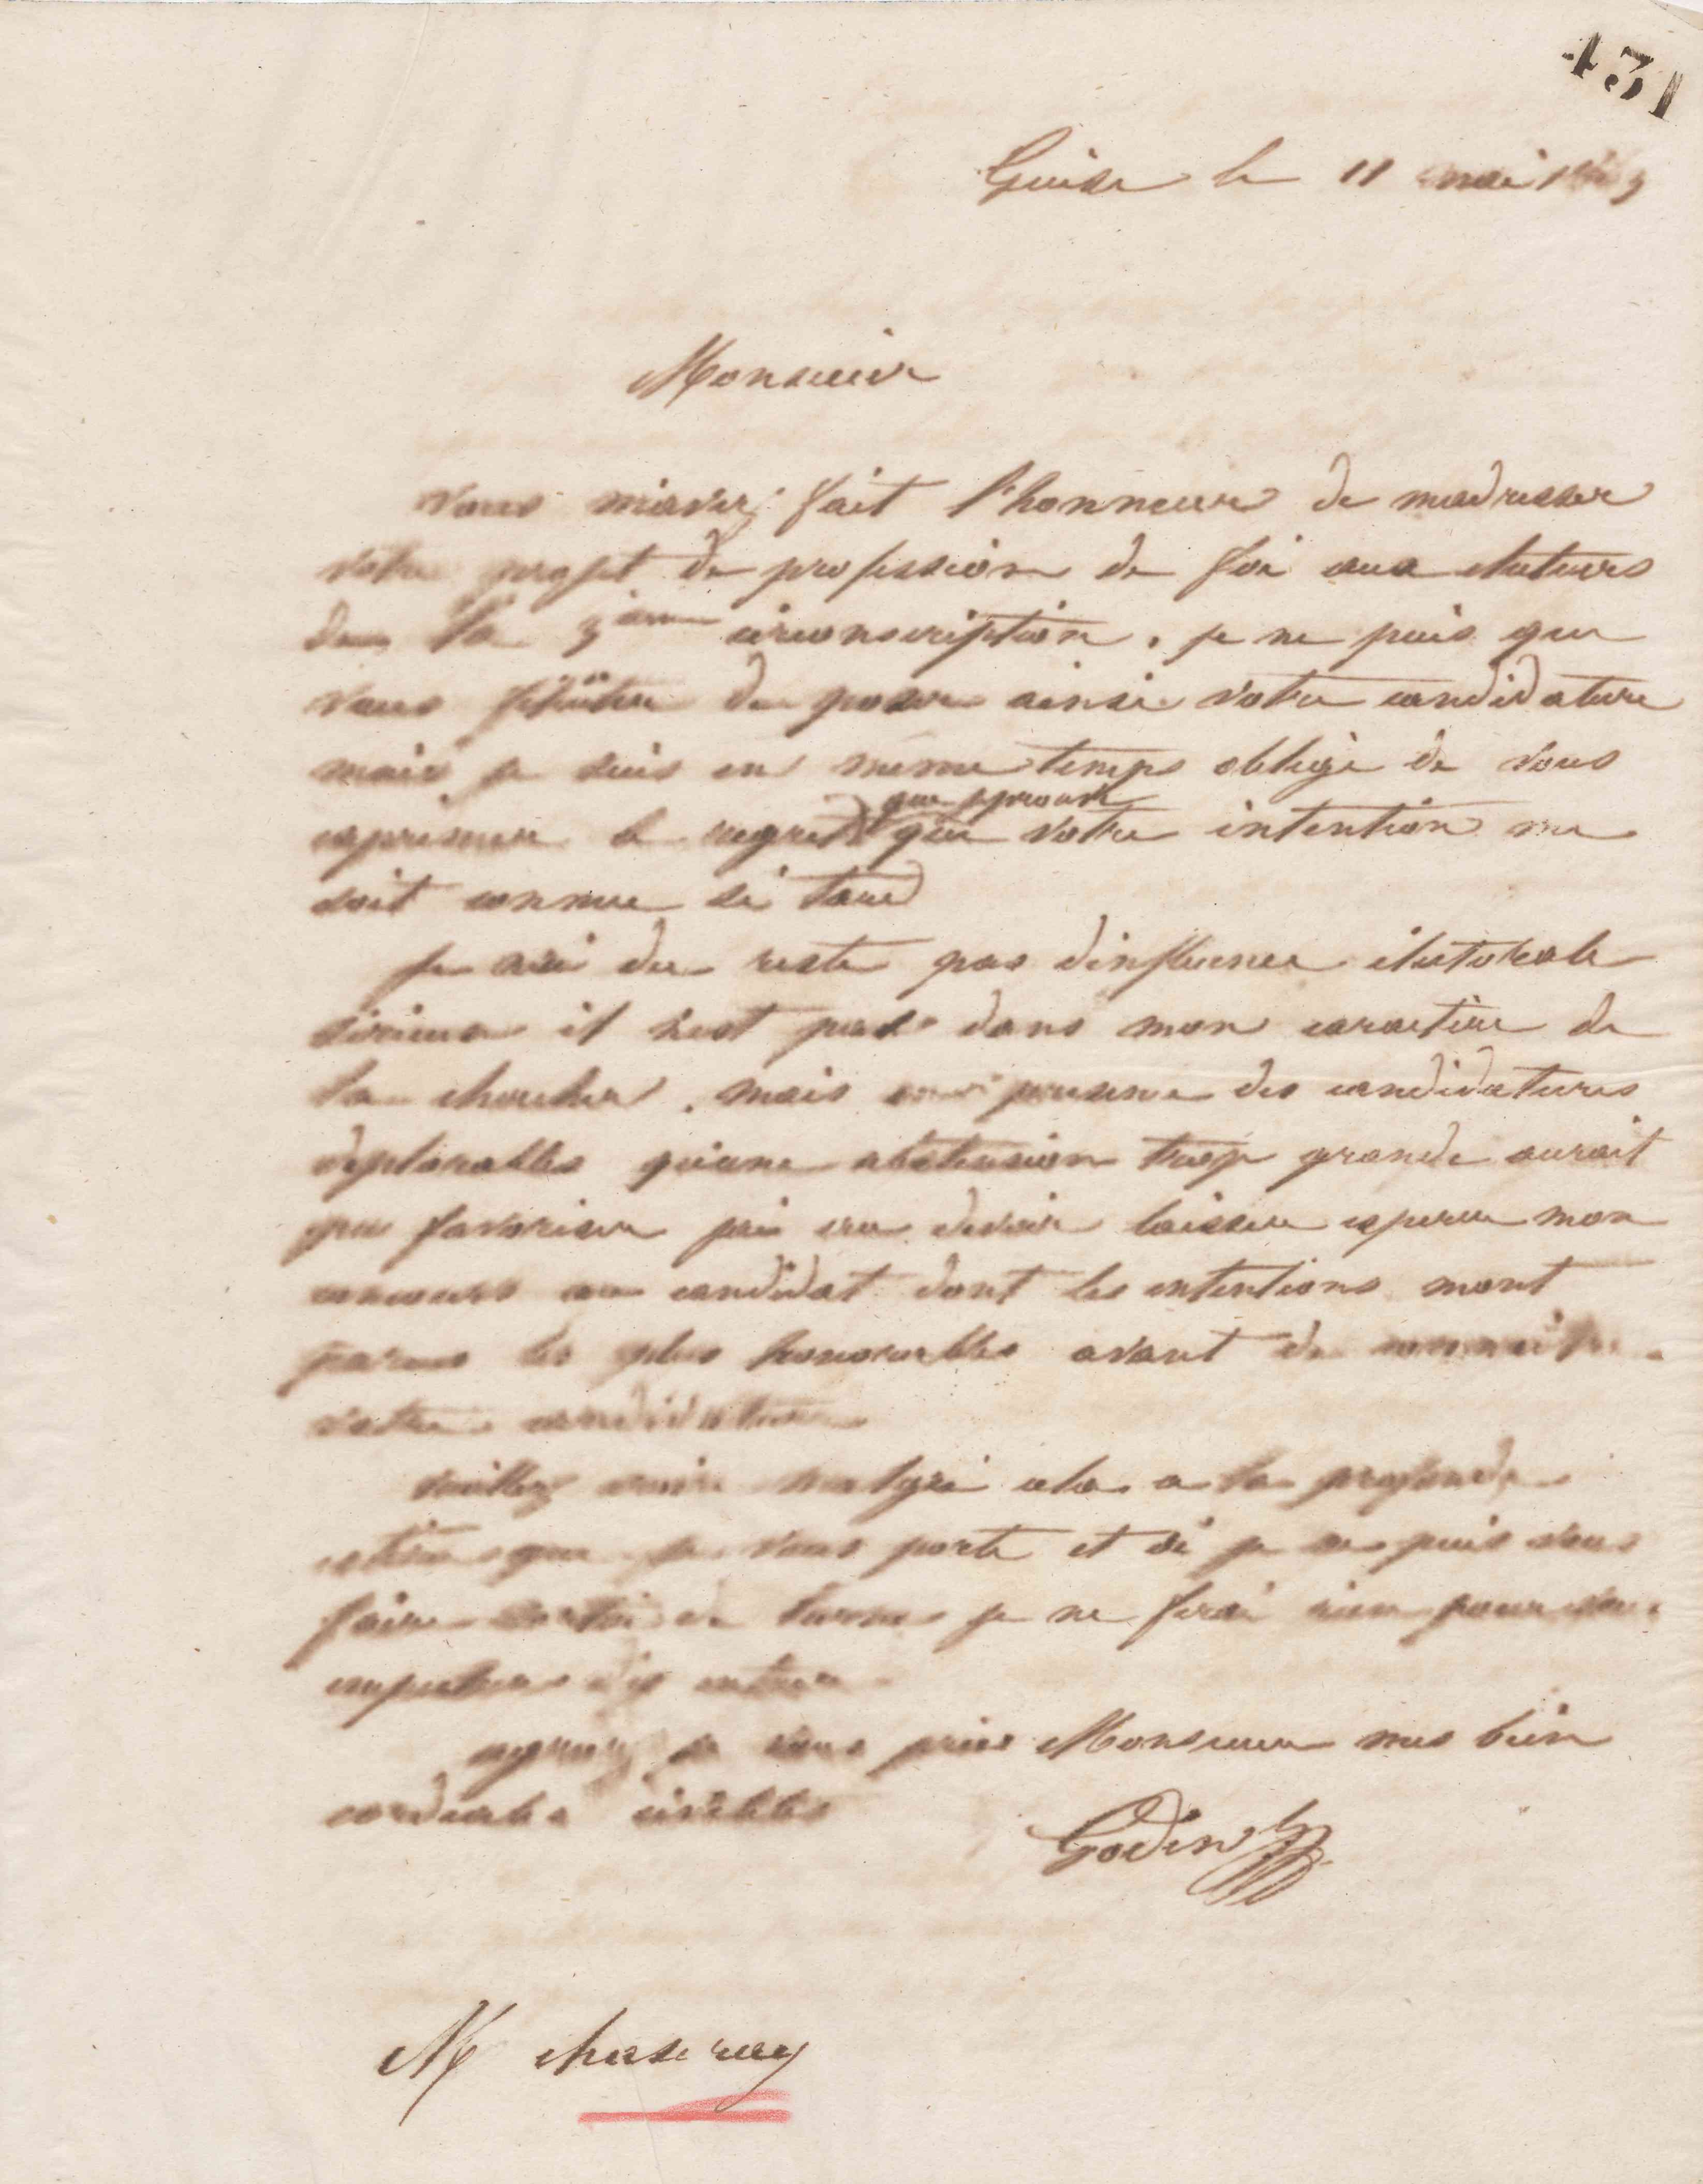 431
Guise le 11 mai
Monsieur
vous m'avez fait l'honneur de madresser
votre projet de profession de foi aux electeurs
de la 3ieme circonscription. je ne puis que
vous féliciter de poser ainsi votre candidature
mais je suis en meme temps obligé de vous
que j'eprouve
exprimer le regret que votre intention me
soit connue si tard
je nai du reste pas d'influence electorale
serieuse il n'est pas dans mon caractère de
la chercher. mais en presence des candidatures
deplorables qu'une abstension trop grande aurait
pu favoriser jai cru devoir laisser esperer mon
concours au candidat dont les intentions mont
parues les plus honorables avant de connaitre
votre candidature
veuillez croire malgré cela a la profonde
estime que je vous porte et si je ne puis vous
faire je ne ferai rien pour
agreez je vous prie Monsieur mes bien
cordiales civilités
Godin
M chaseray